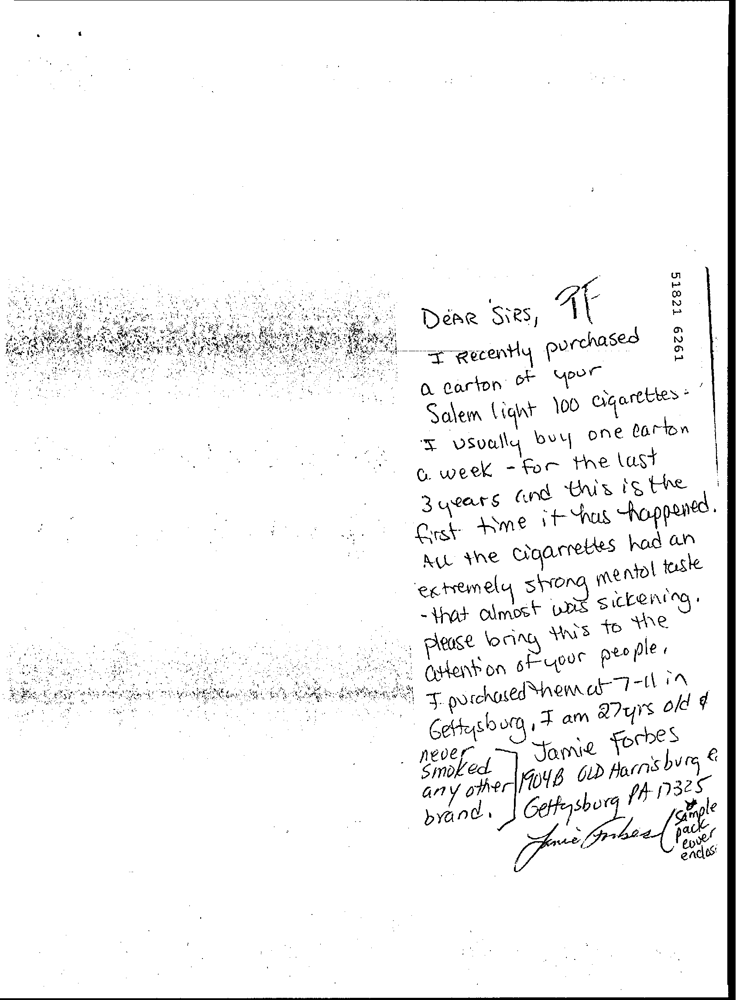 DEAR SIRS,
I Recently purchased
a carton of your
Salem light 100 cigarettes.
I usually buy one carton
a week - for the last
3 years and this is the
first time it has happened.
All the cigarrettes had an
extremely strong mentol taste
- that almost was sickening.
please bring this to the
attention of your people.
I purchased them at 7-11 in
Gettysburg, I am 27yrs old &
never
smoked
any other
brand.
Jamie Forbes
1904B OLD Harrisburg
Gettysburg PA 17325
Jamie Forbes
Sample
pack
cover
enclos
51821 6261